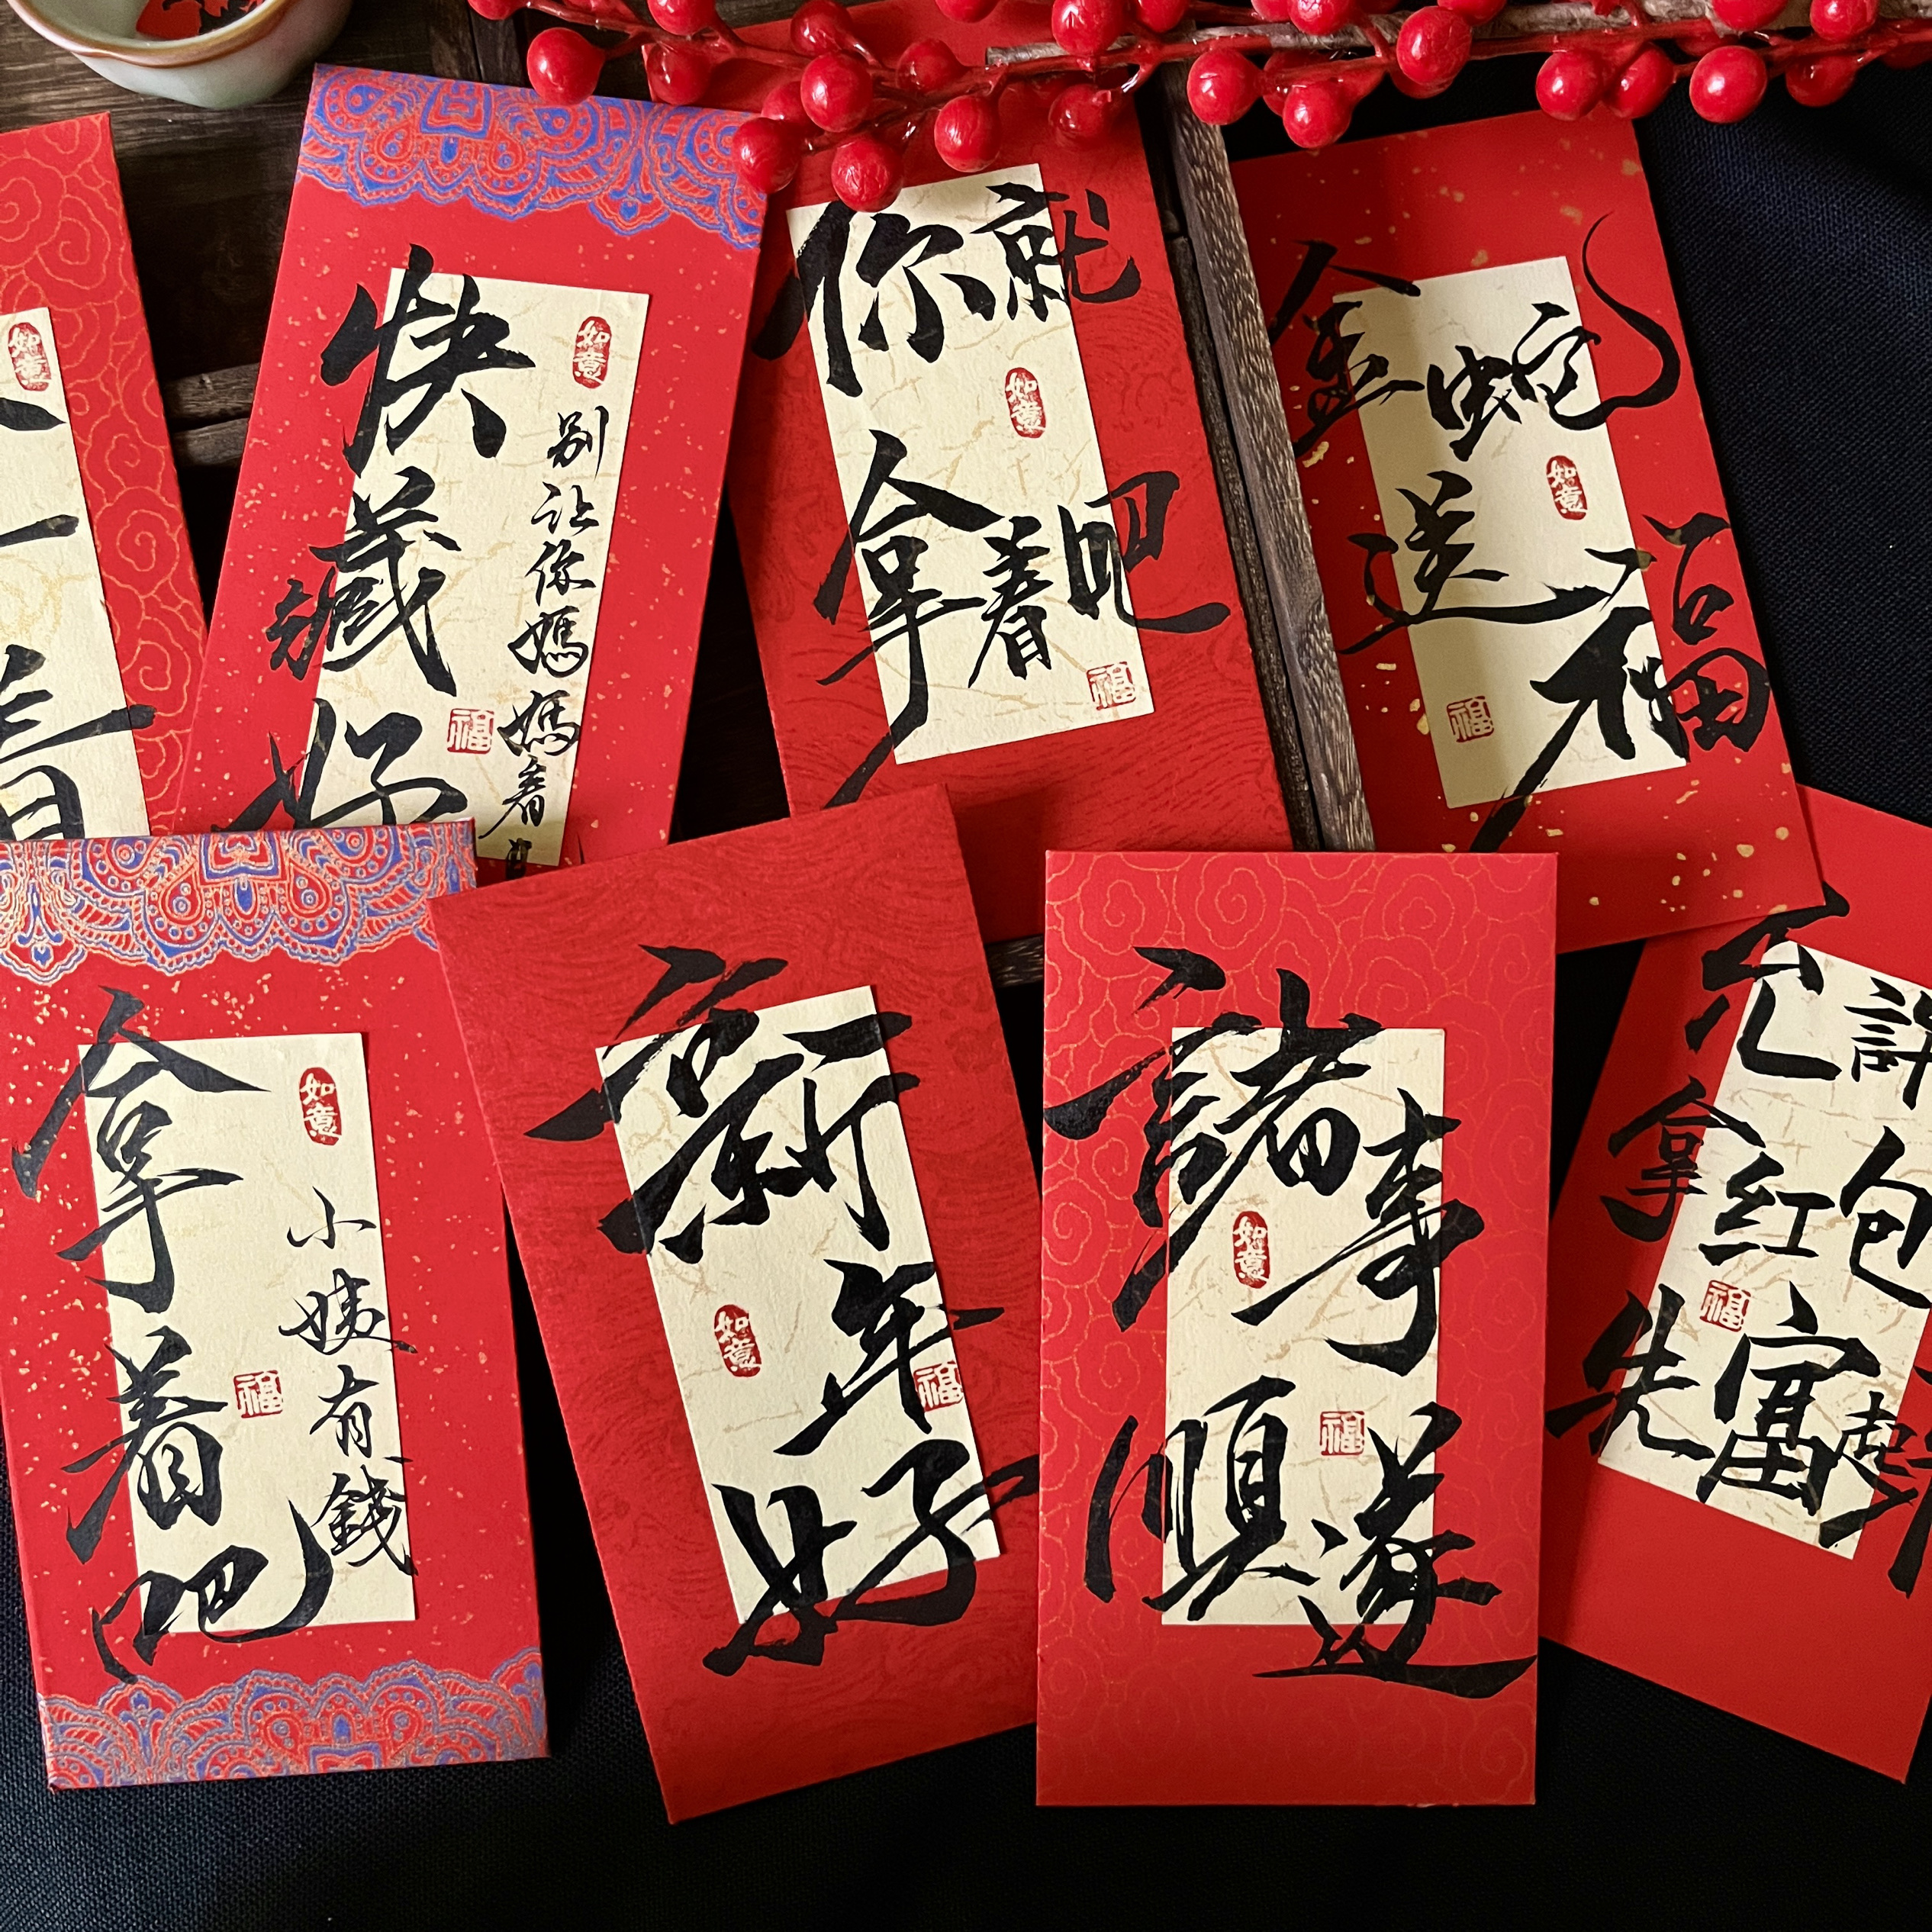 如意
着
快藏好
如意
别让你媽媽看
福
你就
如意
拿着吧
福
金蛇
如意
送福
福
拿着吧
如意
小姨有錢
福
新年好
如意
福
諸事
如意
順遂
福
允許
拿红包
福
先富起